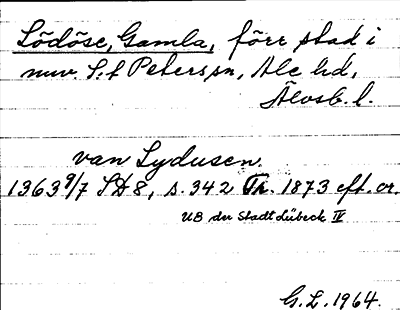 Lödöse, Gamla, förr stad i
nuv. S:t Peters sn, Ale hd,
Älvsb. l.
van Lydusen.
1363 9/7 SD 8, s. 342 Tr. 1873 eft. or.
UB der Stadt Lübeck IV
G.L. 1964.